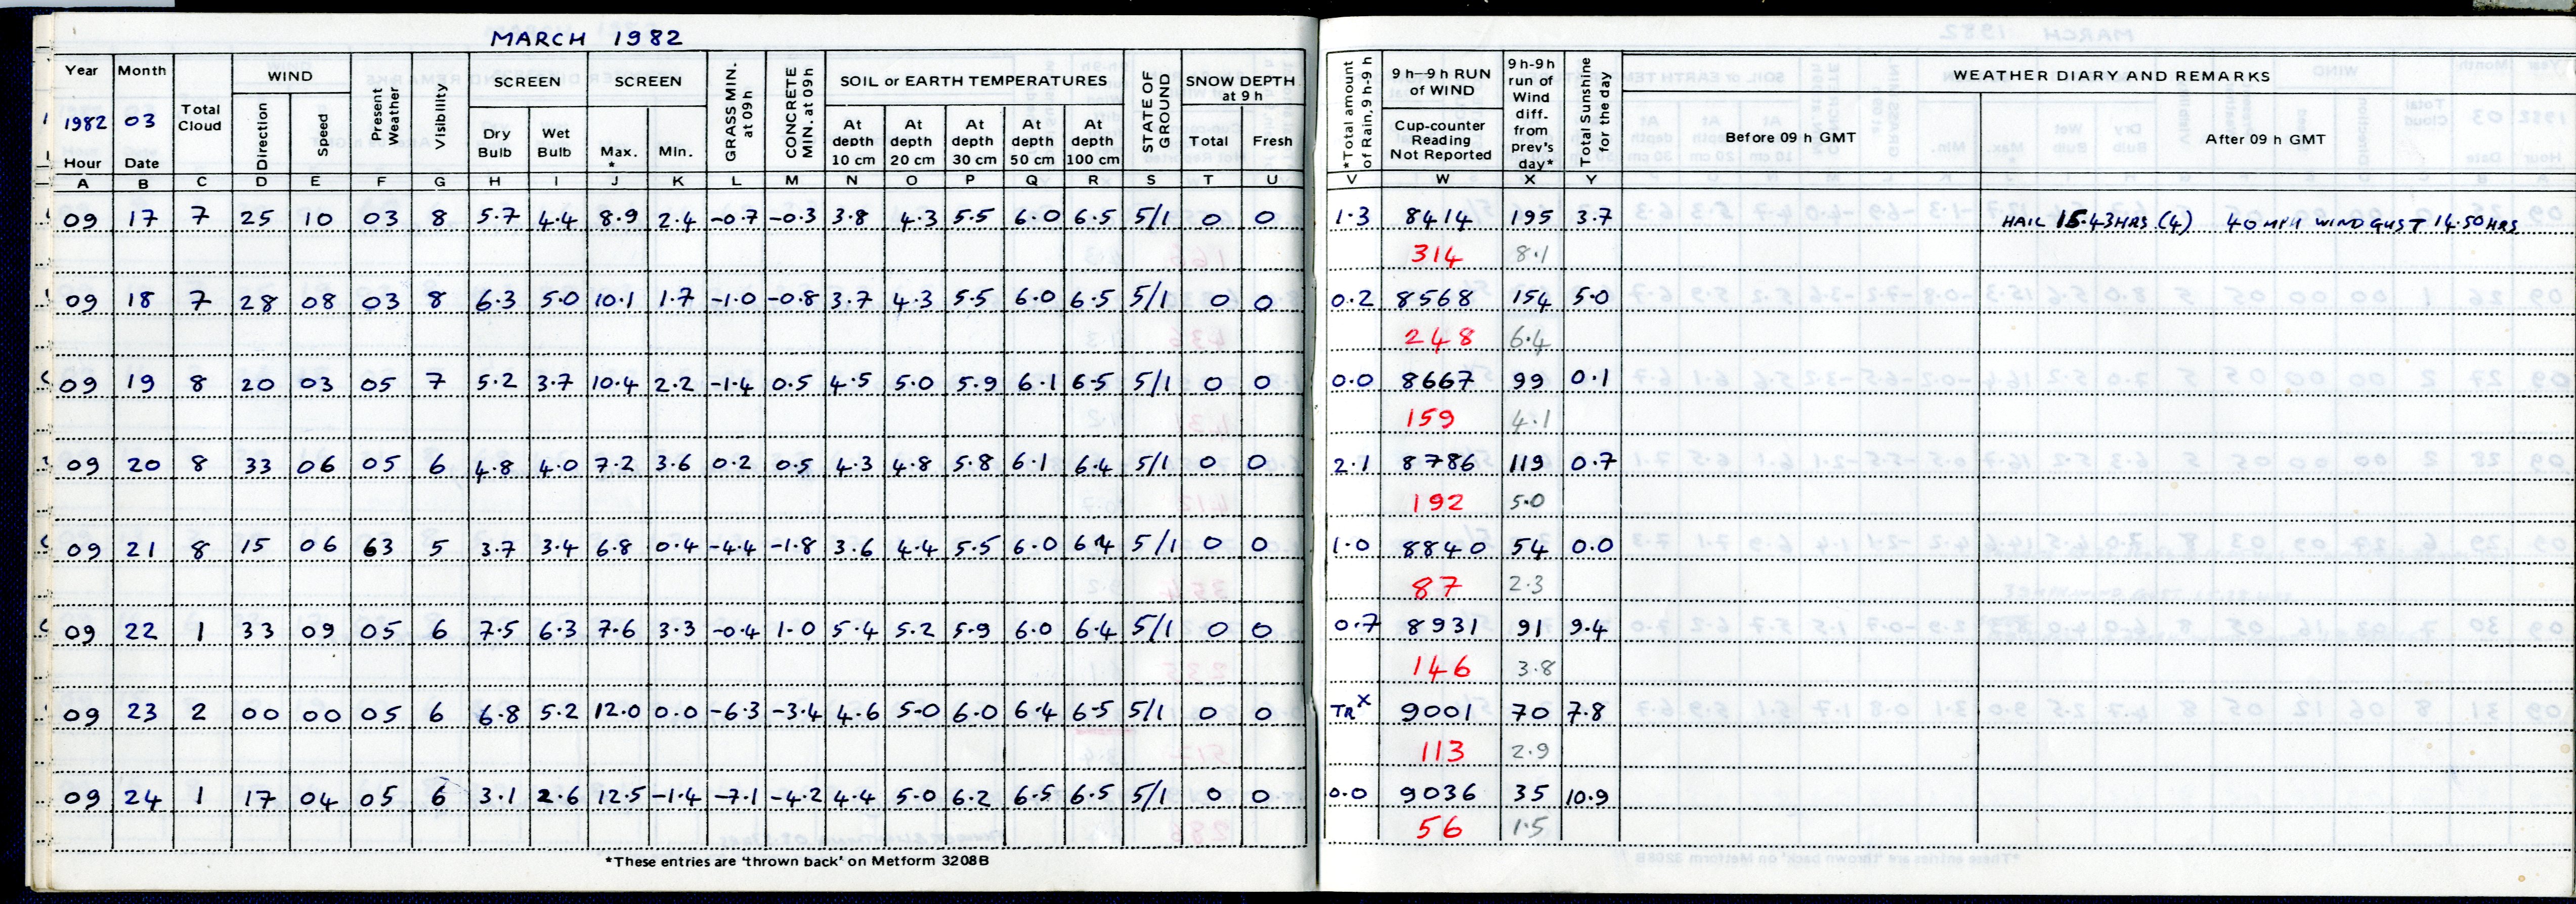 MARCH 1982
Year Month Total Cloud WIND Present Weather Visibility SCREEN SCREEN GRASS MIN. at 09h CONCRETE MIN. at 09h SOIL or EARTH TEMPERATURES STATE OF GROUND SNOW DEPTH at 9 h *Total amount of Rain, 9 h-9 h 9 h—9 h RUN of WIND 9 h-9 h run of Wind diff. from prev's day* Total Sunshine for the day WEATHER DIARY AND REMARKS
1982 03 Direction Speed Dry Bulb Wet Bulb Max. * Min. At depth 10 cm At depth 20 cm At depth 30 cm At depth 50 cm At depth 100 cm Total Fresh Cup-counter Reading Not Reported Before 09 h GMT After 09 h GMT
Hour Date
A B C D E F G H I J K L M N O P Q R S T U V W X Y
09 17 7 25 10 03 8 5.7 4.4 8.9 2.4 -0.7 -0.3 3.8 4.3 5.5 6.0 6.5 5/1 0 0 1.3 8414 195 3.7 HAIL 15.43HRS (4) 40 MPH WIND GUST 14.50HRS
314 8.1
09 18 7 28 08 03 8 6.3 5.0 10.1 1.7 -1.0 -0.8 3.7 4.3 5.5 6.0 6.5 5/1 0 0 0.2 8568 154 5.0
248 6.4
09 19 8 20 03 05 7 5.2 3.7 10.4 2.2 -1.4 0.5 4.5 5.0 5.9 6.1 6.5 5/1 0 0 0.0 8667 99 0.1
159 4.1
09 20 8 33 06 05 6 4.8 4.0 7.2 3.6 0.2 0.5 4.3 4.8 5.8 6.1 6.4 5/1 0 0 2.1 8786 119 0.7
192 5.0
09 21 8 15 06 63 5 3.7 3.4 6.8 0.4 -4.4 -1.8 3.6 4.4 5.5 6.0 6.4 5/1 0 0 1.0 8840 54 0.0
87 2.3
09 22 1 33 09 05 6 7.5 6.3 7.6 3.3 -0.4 1.0 5.4 5.2 5.9 6.0 6.4 5/1 0 0 0.7 8931 91 9.4
146 3.8
09 23 2 00 00 05 6 6.8 5.2 12.0 0.0 -6.3 -3.4 4.6 5.0 6.0 6.4 6.5 5/1 0 0 TR x 9001 70 7.8
113 2.9
09 24 1 17 04 05 6 3.1 2.6 12.5 -1.4 -7.1 -4.2 4.4 5.0 6.2 6.5 6.5 5/1 0 0 0.0 9036 35 10.9
56 1.5
*These entries are 'thrown back' on Metform 3208B